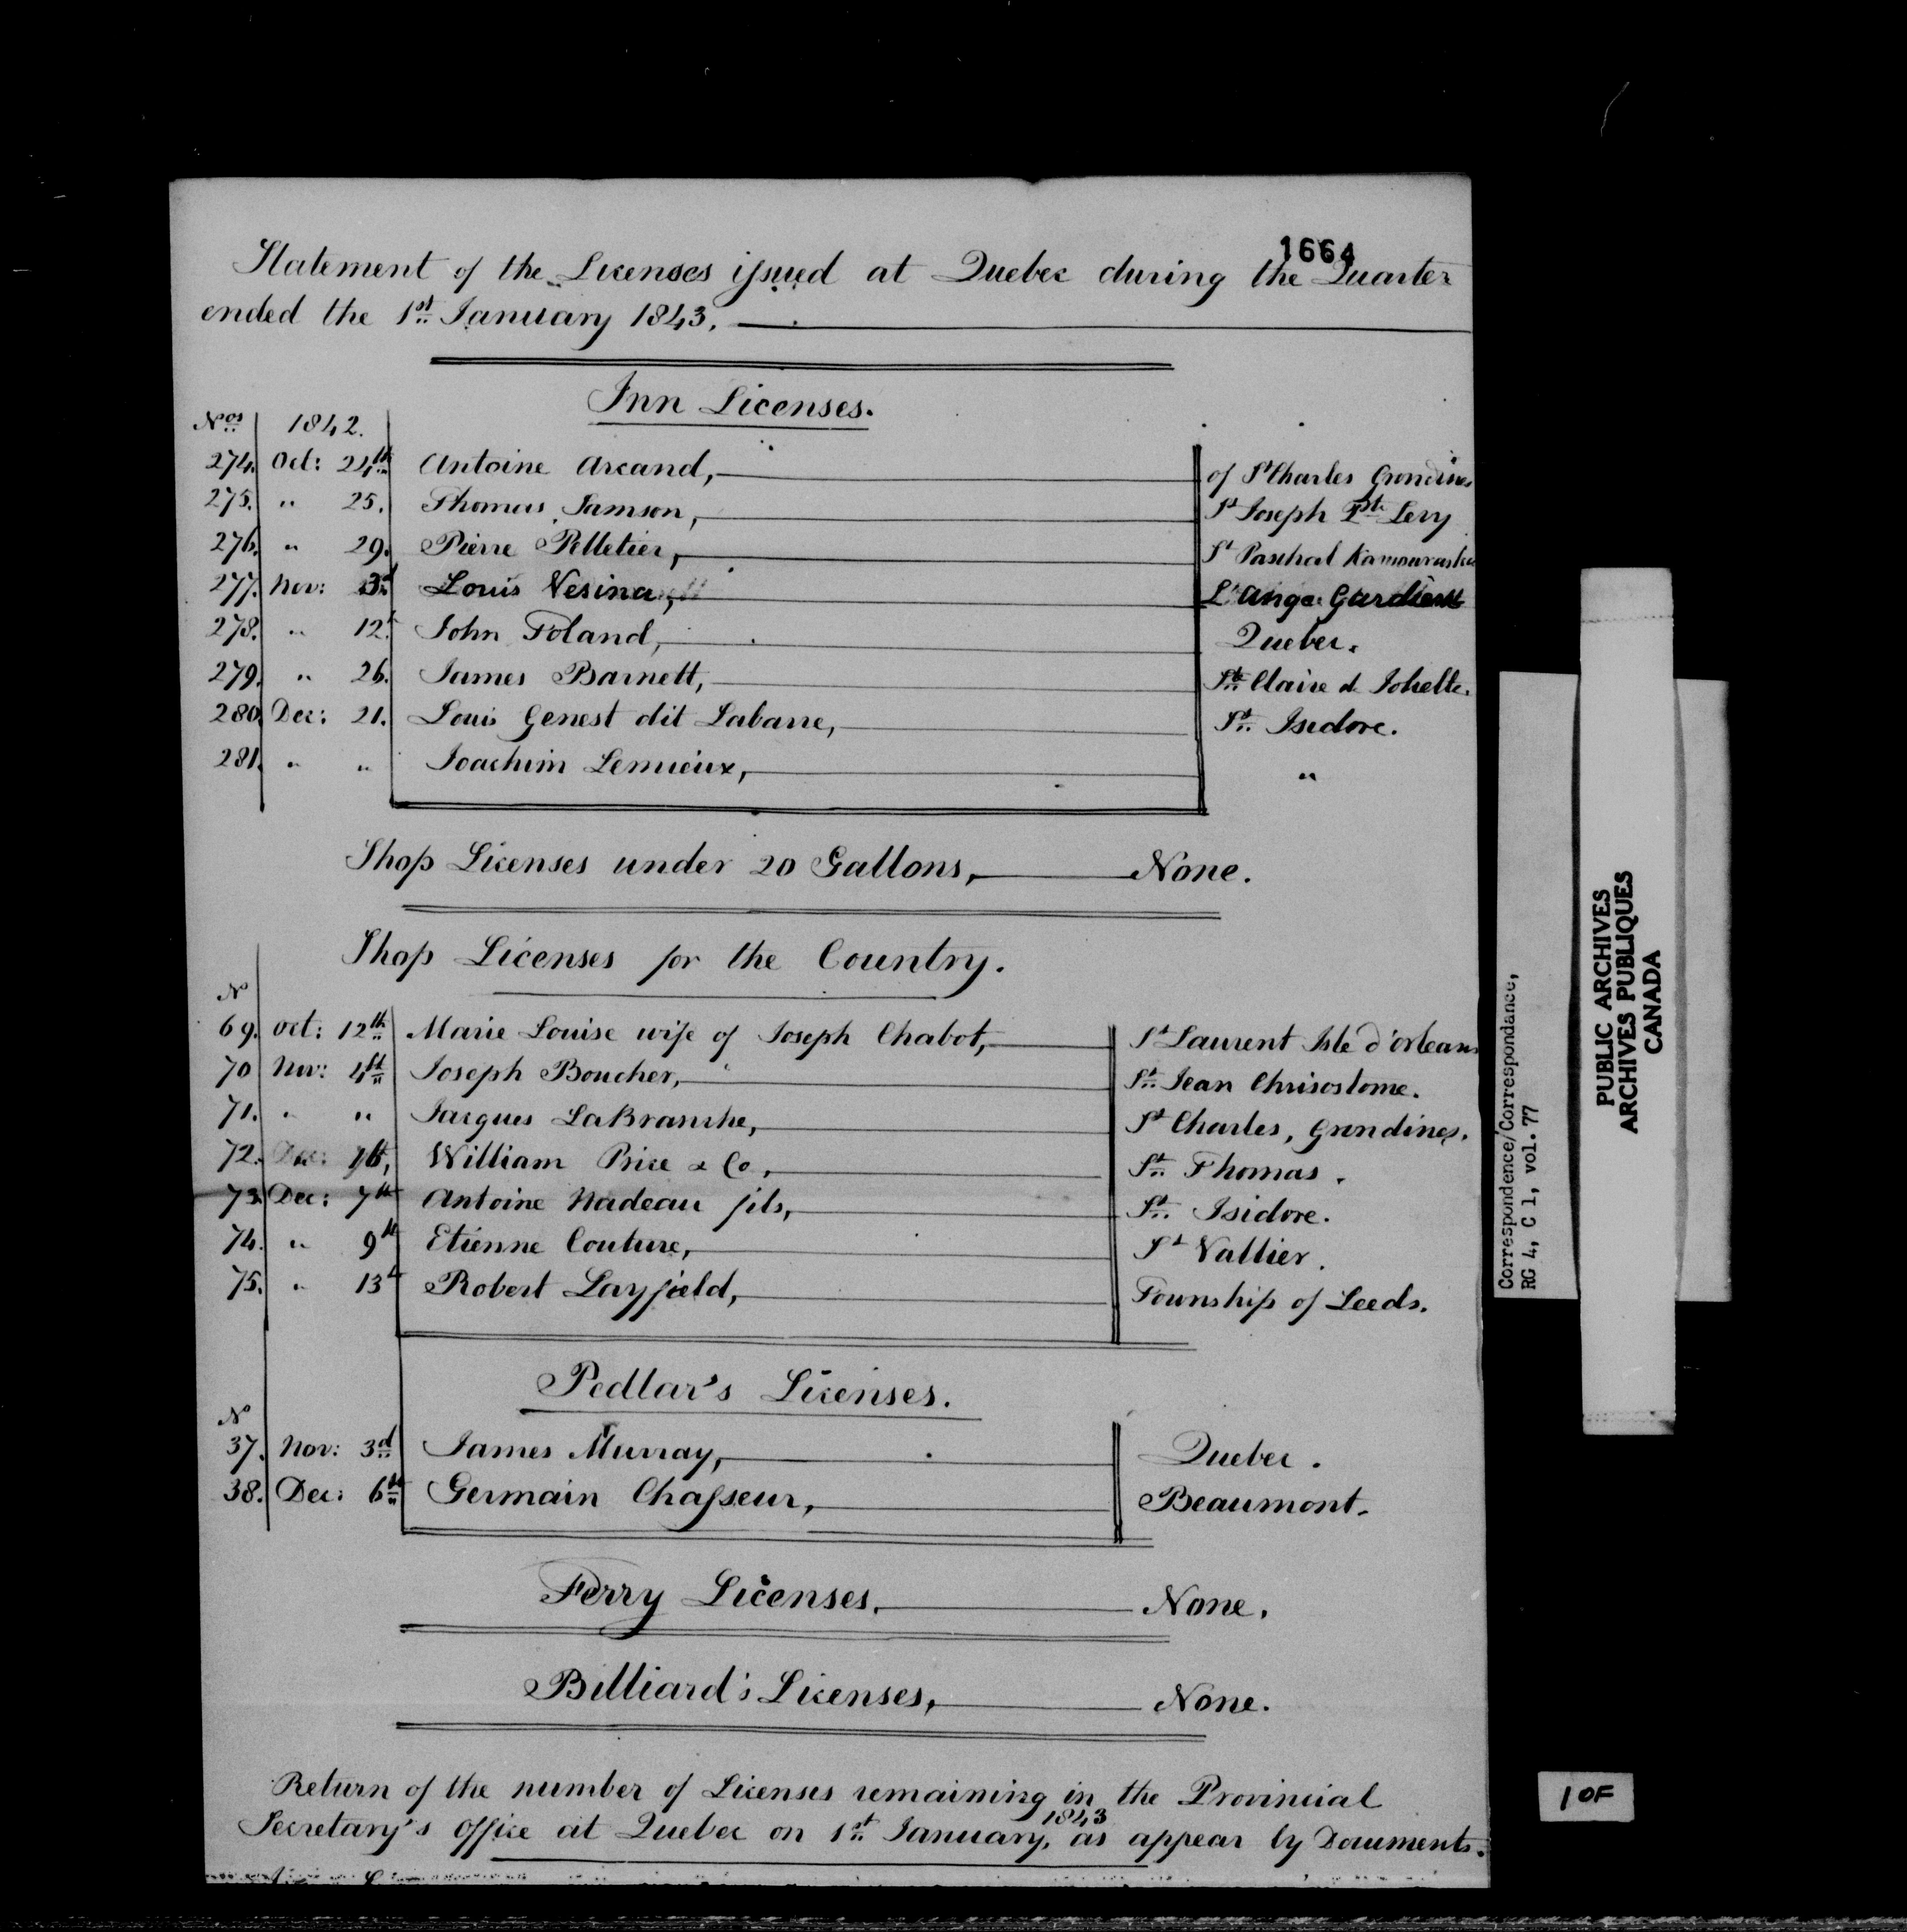 1664
Statement of the Licenses issued at Quebec during the Quarter
ended the 1st January 1843.
Inn Licenses.
Nos 1842.
274. Oct: 24th Antoine Arcand, of St Charles Grondines
275. " 25. Thomas Samson, St Joseph Pte Levy
276. " 29. Pierre Pelletier, St Paschal Kamouraska
277. Nov: 3d Louis Vesina, L'Ange Gardien
278. " 12. John Toland, Quebec.
279. " 26. James Barnett, Ste Claire de Joliette.
280. Dec: 21. Louis Genest dit Labarre, St Isidore.
281. " " Joachim Lemieux, "
Shop Licenses under 20 Gallons, None.
Shop Licenses for the Country.
No
69. Oct: 12th Marie Louise wife of Joseph Chabot, St Laurent Isle d'orleans
70 Nov: 4th Joseph Boucher, St Jean Chrisostome.
71. " " Jacques LaBranche, St Charles, Grondines.
72. Dec: William Price & Co, St Thomas.
73. Dec: 7th Antoine Nadeau fils, St Isidore.
74. " 9th Etienne Couture, St Vallier.
75. " 13th Robert Layfield, Township of Leeds.
Pedlar's Licenses.
No
37. Nov: 3d James Murray, Quebec.
38. Dec: 6th Germain Chasseur, Beaumont.
Ferry Licenses. None.
Billiard's Licenses, None.
Return of the number of Licenses remaining in the Provincial
Secretary's Office at Quebec on 1st January, 1843 as appear by Documents.
Correspondence/Correspondance,
RG 4, C 1, vol. 77
PUBLIC ARCHIVES
ARCHIVES PUBLIQUES
CANADA
1 OF